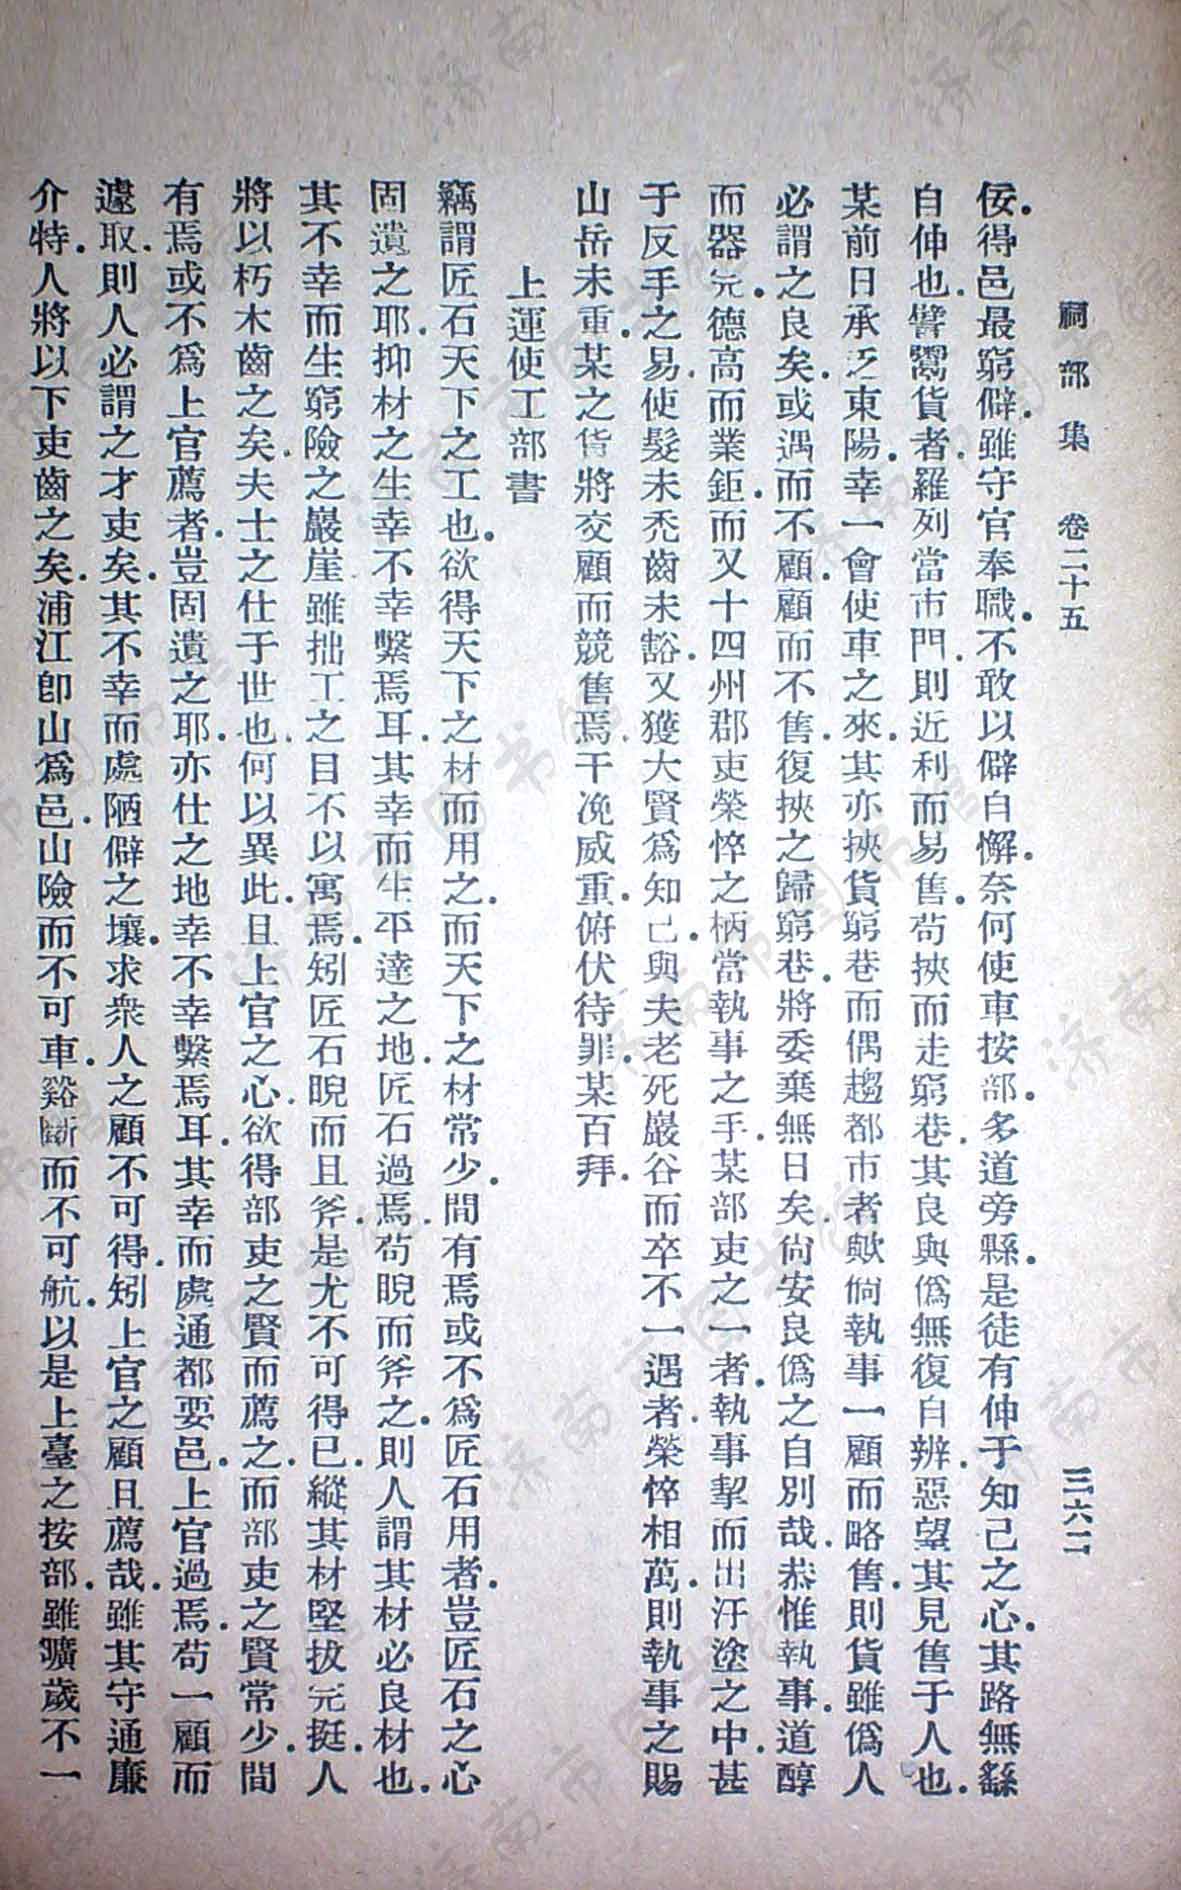 祠部集　卷二十五　三六二
佞．得邑最窮僻．雖守官奉職．不敢以僻自懈．奈何使車按部．多道旁縣．是徒有仲于知己之心．其路無繇
自仲也．譬鬻貨者．羅列當市門．則近利而易售．苟挾而走窮巷．其良與僞無復自辨．惡望其見售于人也．
某前日承乏東陽．幸一會使車之來．其亦挾貨窮巷而偶趨都市者歟倘執事一顧而略售．則貨雖僞人
必謂之良矣．或遇而不顧．顧而不售．復挾之歸窮巷．將委棄無日矣．尙安良僞之自別哉．恭惟執事．道醇
而器完．德高而業鉅．而又十四州郡吏榮悴之柄．當執事之手．某部吏之一者．執事挈而出汙塗之中．甚
于反手之易．使髮未禿齒未豁．又獲大賢爲知己．與夫老死巖谷而卒不一遇者．榮悴相萬．則執事之賜
山岳未重．某之貨將交顧而競售焉．干浼威重．俯伏待罪．某百拜．
上運使工部書
竊謂匠石天下之工也．欲得天下之材而用之．而天下之材常少．間有焉或不爲匠石用者．豈匠石之心
固遺之耶．抑材之生幸不幸繫焉耳．其幸而生平達之地．匠石過焉．苟睨而斧之．則人謂其材必良材也．
其不幸而生窮險之巖崖．雖拙工之目不以寓焉．矧匠石睨而且斧．是尤不可得已．縱其材堅拔完挺．人
將以朽木齒之矣．夫士之仕于世也．何以異此．且上官之心．欲得部吏之賢而薦之．而部吏之賢常少．間
有焉或不爲上官薦者．豈固遺之耶．亦仕之地幸不幸繫焉耳．其幸而處通都要邑．上官過焉．苟一顧而
遽取．則人必謂之才吏矣．其不幸而處陋僻之壤．求衆人之顧不可得．矧上官之顧且薦哉．雖其守通廉
介特．人將以下吏齒之矣．浦江卽山爲邑．山險而不可車．谿斷而不可航．以是上臺之按部．雖曠歲不一